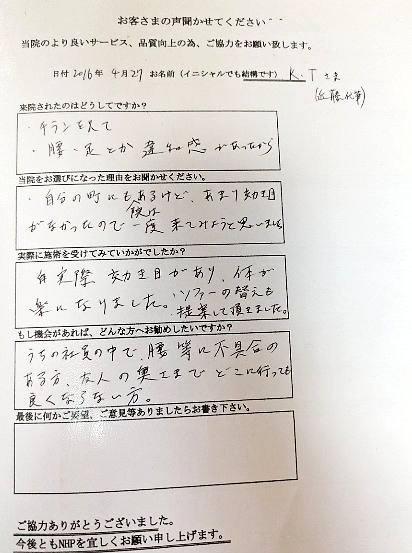 お客さまの声聞かせてください
当院のより良いサービス、品質向上の為、ご協力をお願い致します。
日付 2016年 4月27 お名前（イニシャルでも結構です） K.T さま
(近藤代筆)
来院されたのはどうしてですか？
・チラシを見て
・腰・足とか違和感があったから
当院をお選びになった理由をお聞かせください。
・自分の町にもあるけど、あまり効き目
がなかったので一度来てみようと思いました
実際に施術を受けてみていかがでしたか？
実際効き目があり、体が
楽になりました。ソファーの替えも
提案して頂きました。
もし機会があれば、どんな方へお勧めしたいですか？
うちの社員の中で、腰等に不具合の
ある方、友人の奥さまでどこに行っても
良くならない方。
最後に何かご要望、ご意見等ありましたらお書き下さい。
ご協力ありがとうございました。
今後ともNHPを宜しくお願い申し上げます。